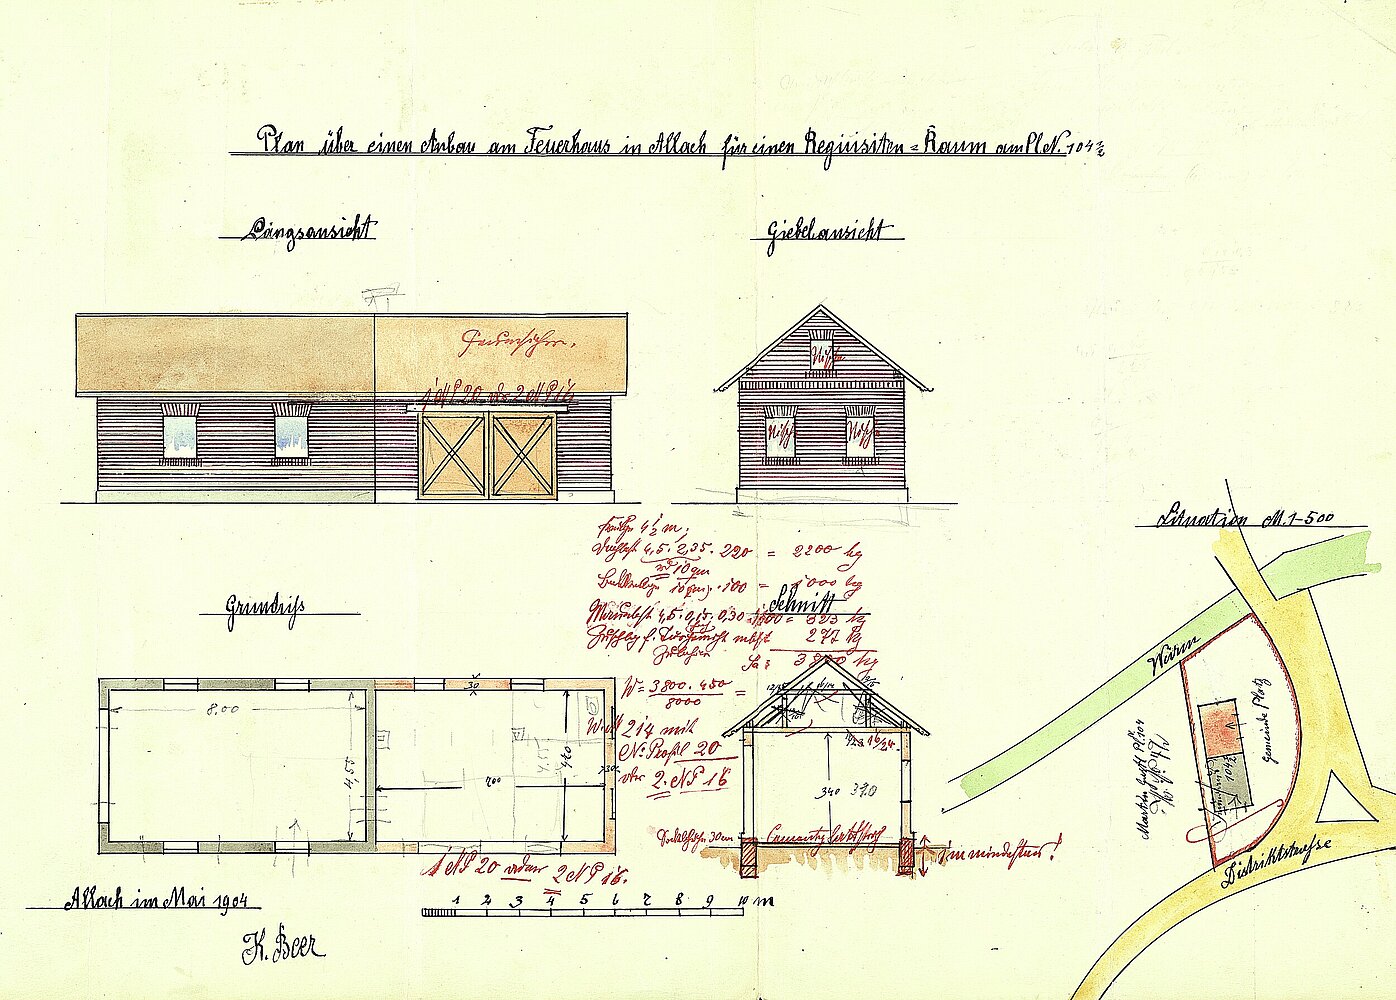 Plan über einen Anbau am Feuerhaus in Allach für einen Requisiten=Raum am Pl.N. 104½
Längsansicht
Giebelansicht
1 NP 20 od. 2 NP 16
Nische
Nische
Nische
Situation M. 1-500
4,5 · 2,35 · 220 = 2200 kg
10 qm
· 100 = 1000 kg
Schnitt
4,5 · 0,15 · 0,30 · 1600 = 323 kg
Zuschlag f.
277 kg
Sa: 3800 kg
W = 3800 · 450 =
8000
214 mit
N. Profil 20
oder 2 NP 16
Grundriss
30
8,00
4,55
7,00
4,60
340
Sockelhöhe 30 cm
1 m mindestens!
1 NP 20 oder 2 NP 16.
Würm
Gemeinde Platz
Distriktstrasse
Allach im Mai 1904
K. Beer
1 2 3 4 5 6 7 8 9 10 m